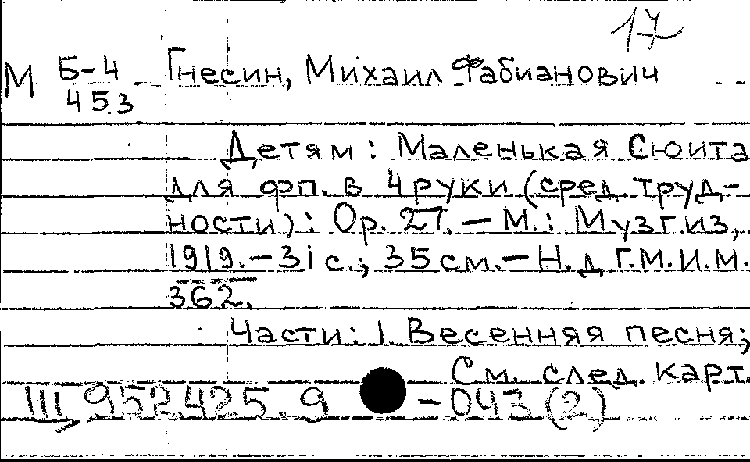 17
М Б-4 Гнесин, Михаил Фабианович
45.3
Детям: Маленькая Сюита
для фп. в 4 руки (сред. труд-
ности): Ор. 27. – М.: Музгиз,
1919. – 31 с.; 35 см. – Н. д Г.М.И.М.
362.
Части: 1. Весенняя песня;
См. след. карт.
Щ 952425.9 – 043 (2)